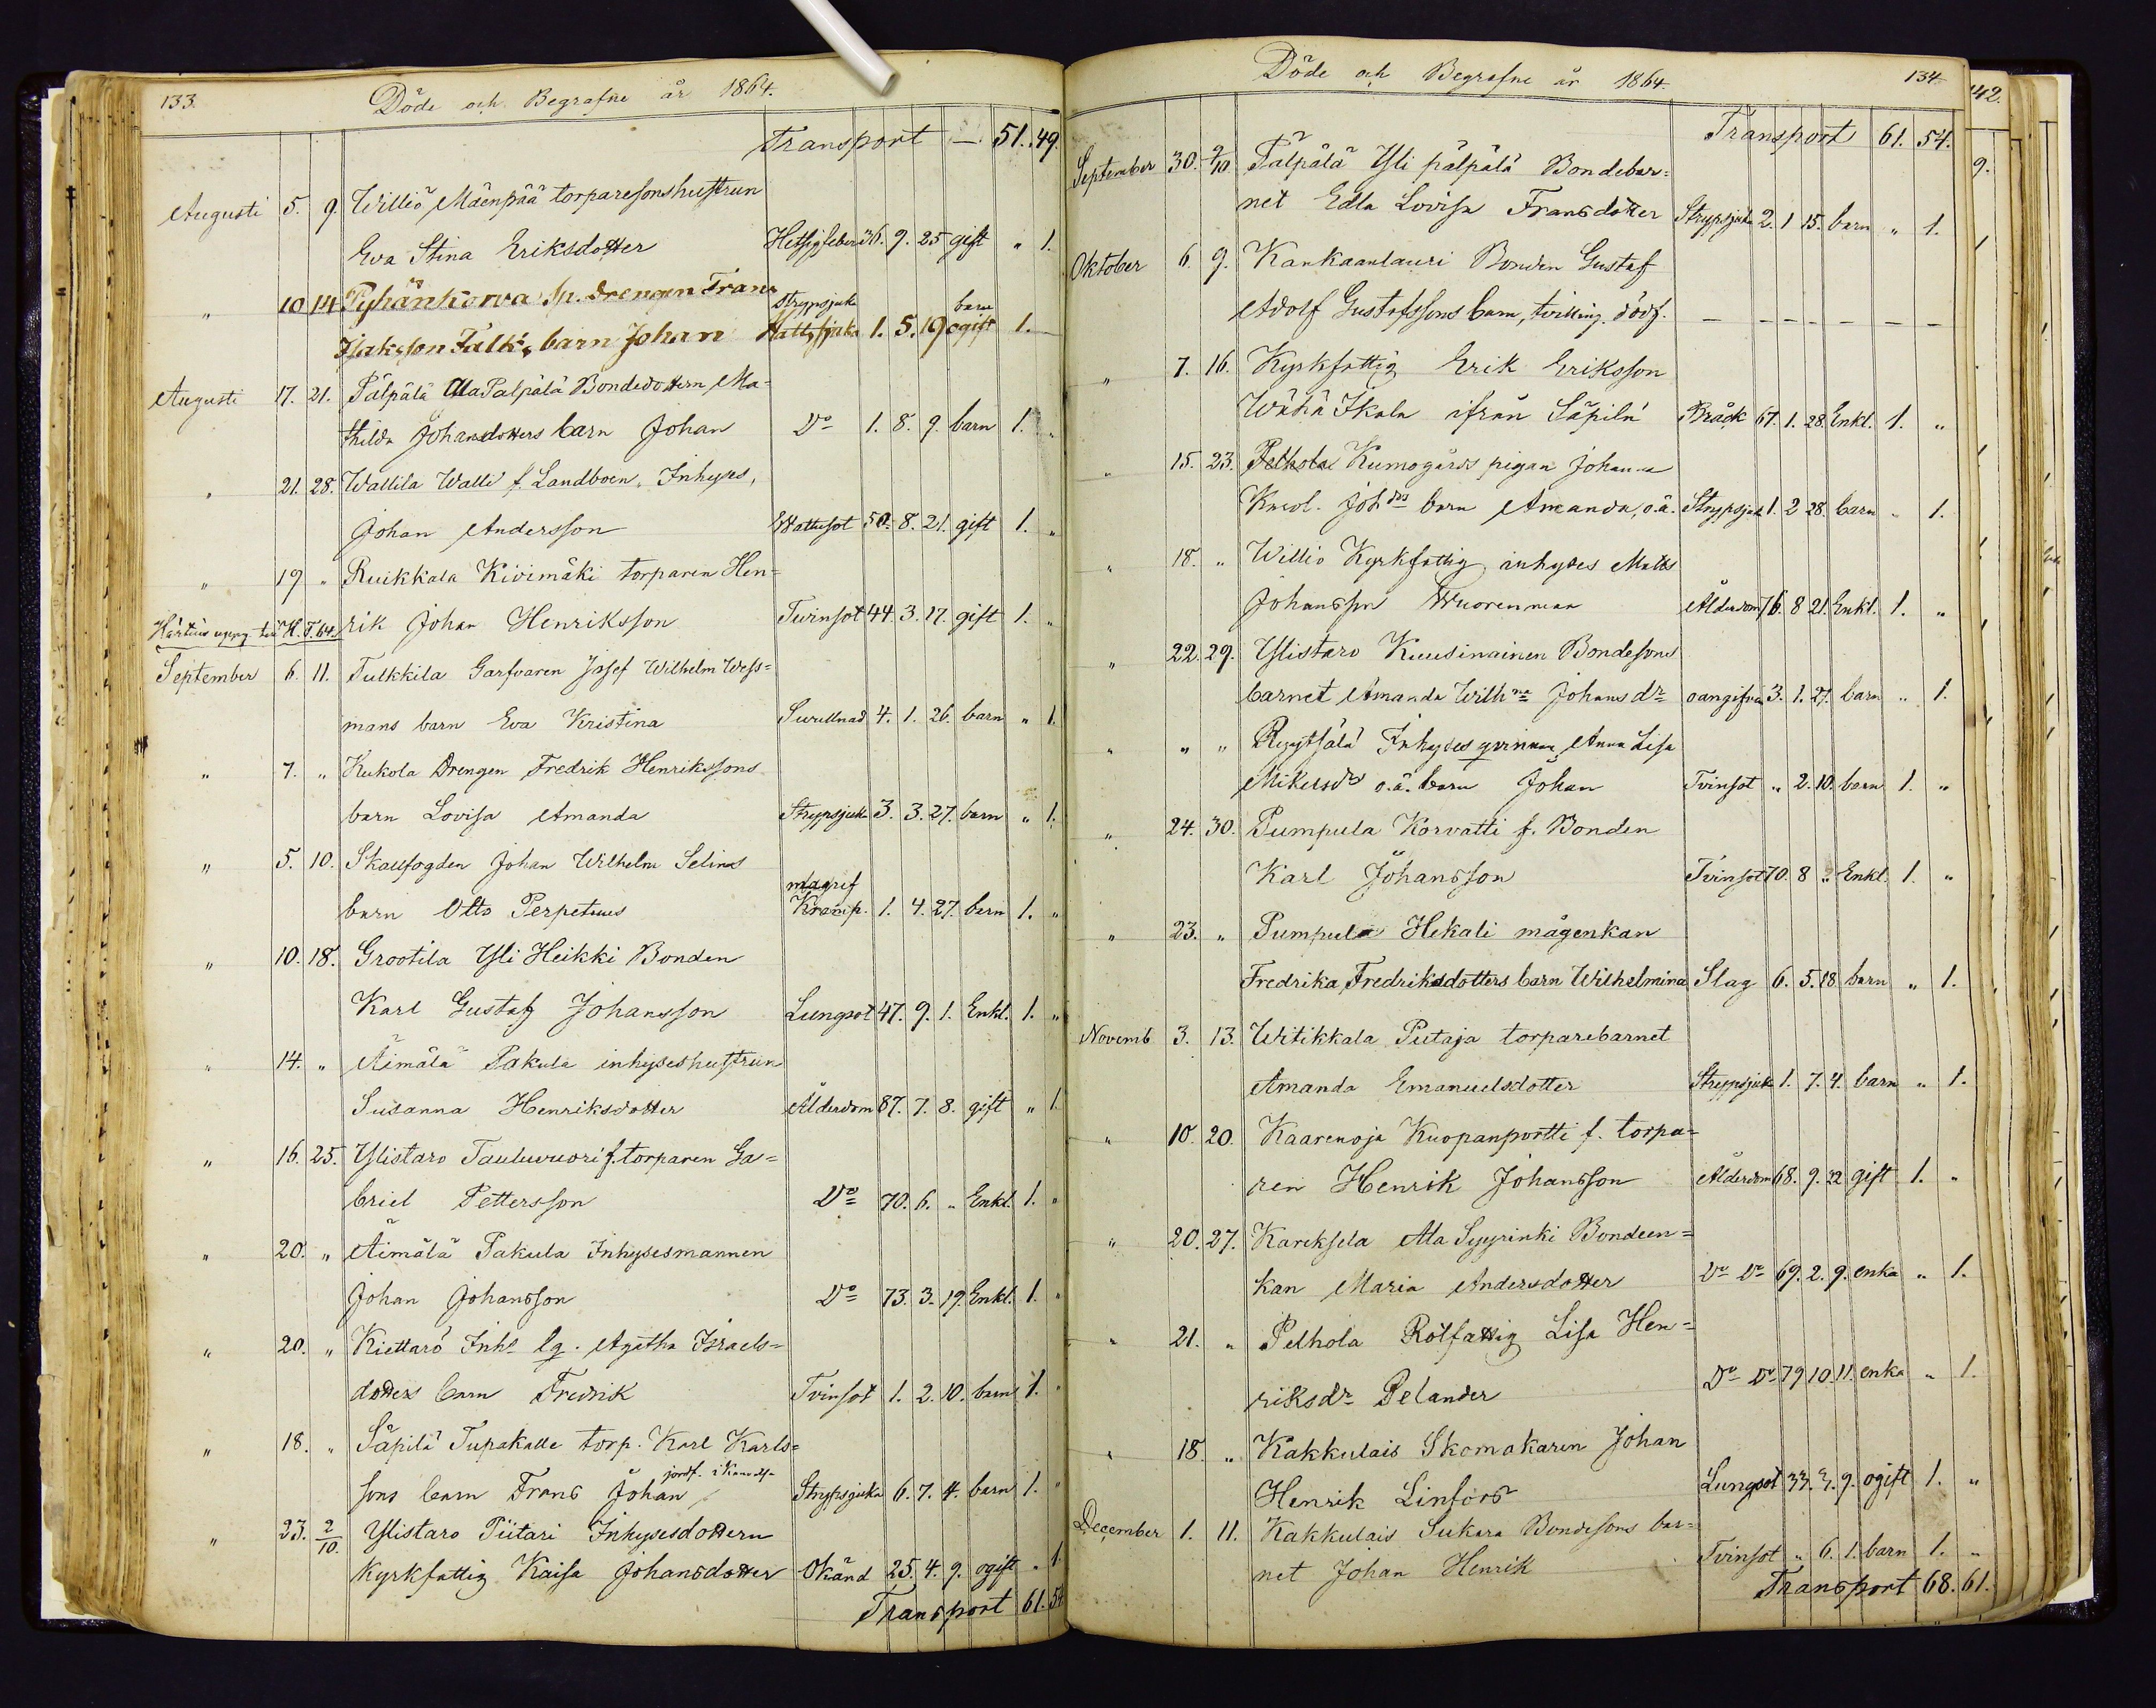 133.
Döde och Begrafne år 1864.
Transport — 51. 49.
Augusti 5. 9. Williö Mäenpää torparesonshustrun
Eva Stina Eriksdotter Hetsigfeber 36. 9. 25 gift " 1.
" 10 14 Pyhänkorva Sp. drengen Frans
Isaksson Falk's barn Johan Strypsjuka 1. 5. 19 barn ogift 1.
Augusti 17. 21. Pälpälä Ala Palpälä Bondedottern Ma=
thilda Johansdotters barn Johan Do 1. 8. 9. barn 1. "
" 21. 28. Wallila Walli f. Landboen, Inhyses,
Johan Andersson Wattusot 50. 8. 21. gift 1. "
" 19 " Ruikkala Kivimäki torparen Hen=
Härtills uppg. till H. T. 64. rik Johan Henriksson Tvinsot 44. 3. 17. gift 1. "
September 6. 11. Tulkkila Garfvaren Josef Wilhelm Wess=
mans barn Eva Kristina Surullnad 4. 1. 26. barn " 1.
" 7. " Kukola Drengen Fredrik Henrikssons
barn Lovisa Amanda Strypsjuka 3. 3. 27. barn " 1.
" 5. 10. Skallfogden Johan Wilhelm Selins
barn Otto Perpetuus magref Kramp. 1. 4. 27. barn 1. "
" 10. 18. Grootila Yli Heikki Bonden
Karl Gustaf Johansson Lungsot 47. 9. 1. Enkl. 1. "
" 14. " Äimälä Pakula inhyseshustrun
Susanna Henriksdotter Ålderdom 87. 7. 8. gift " 1.
" 16. 25. Ylistaro Tauluvuori f. torparen Ga=
briel Pettersson Do 70. 6. " Enkl. 1. "
" 20. " Äimälä Pakula Inhysesmannen
Johan Johansson Do 73. 3. 19. Enkl. 1. "
" 20. " Kiettarö Inhs lg. Agatha Israels=
dotters barn Fredrik Tvinsot 1. 2. 10. barn 1. "
" 18. " Säpilä Tupakalle torp. Karl Karls=
sons barn Frans Johan jordf. i Strypsjuka 6. 7. 4. barn 1. "
" 23. 2/10. Ylistaro Piitari Inhysesdottern
Kyrkfattig Kaisa Johansdotter Okänd 25. 4. 9. ogift " 1.
Transport 61. 54
Döde och Begrafne år 1864.
134
Transport 61. 54.
September 30. 9/10 Pälpälä Yli pälpälä Bondebar=
net Edla Lovisa Fransdotter Strypsjuka 2. 1 15. barn " 1.
Oktober 6. 9. Kankaanlauri Bonden Gustaf
Adolf Gustafssons barn, tvilling. dödf. — — — — — — —
" 7. 16. Kyrkfattig Erik Eriksson
Wähä Ikala ifrån Säpilä Bråck 67. 1. 28. Enkl. 1. "
" 15. 23. Pelhola Kumogårds pigan Johanna
Karol. Johdrs barn Amanda, o.ä. Strypsjuk 1. 2 28. barn " 1.
" 18. " Williö Kyrkfattig inhyses Matts
Johansson Wuorenmaa Ålderdom 76. 8 21. Enkl. 1. "
" 22. 29. Ylistaro Kuusinainen Bondesons
barnet Amanda Wilhna Johansdr oangifven 3. 1. 27. barn " 1.
" " " Ryytsälä Inhyses qvinnan Anna Lisa
Mikelsdrs o.ä. barn Johan Tvinsot " 2. 10. barn 1. "
" 24. 30. Pumpula Korvatti f. Bonden
Karl Johansson Tvinsot 70. 8 " Enkl. 1. "
" 23. " Pumpula Hekali mågenkan
Fredrika Fredriksdotters barn Wilhelmina Slag 6. 5. 18 barn " 1.
Novemb 3. 13. Witikkala Putaja torparebarnet
Amanda Emanuelsdotter Strypsjuka 1. 7. 4. barn " 1.
" 10. 20. Kaarenoja Kuopanportti f. torpa=
ren Henrik Johansson Ålderdom 68. 9. 22 gift 1. "
" 20. 27. Kareksela Ala Syyrinki Bondeen=
kan Maria Andersdotter Do Do 69. 2. 9. enka " 1.
" 21. " Pelhola Rotfattig Lisa Hen=
riksdr Pelander Do Do 79 10. 11. enka " 1.
" 18. " Kakkulais Skomakaren Johan
Henrik Linfors Lungsot 33. 3. 9. ogift 1. "
December 1. 11. Kakkulais Sukara Bondesons bar=
net Johan Henrik Tvinsot " 6. 1. barn 1. "
Transport 68. 61.
142.
9.